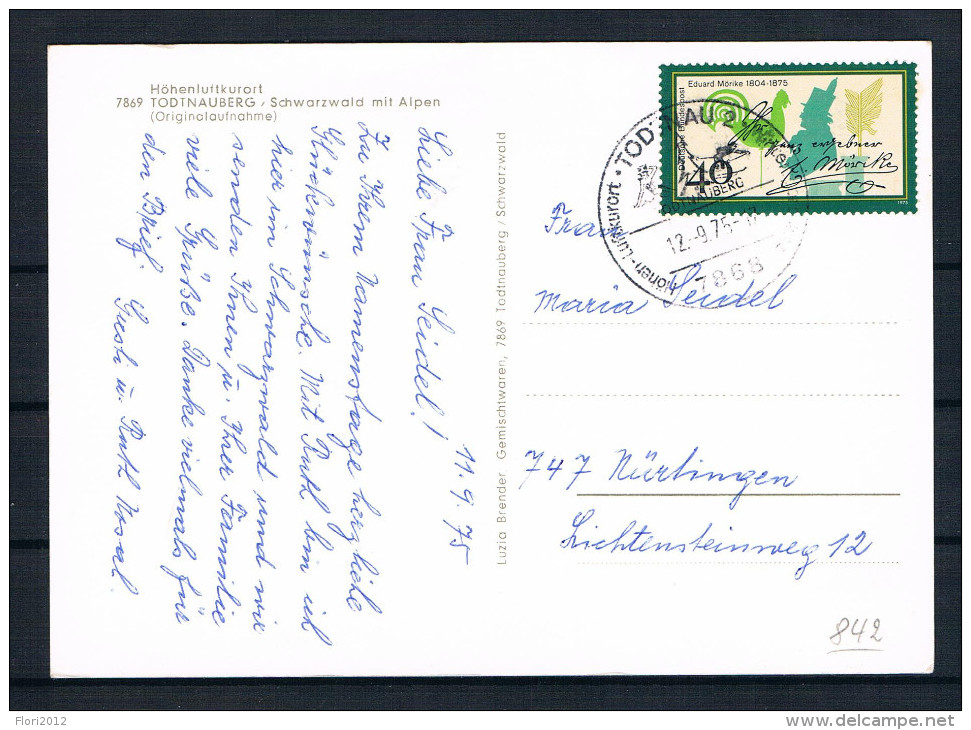 Höhenluftkurort
7869 TODTNAUBERG / Schwarzwald mit Alpen
(Originalaufnahme)
11.9.75
Liebe Frau Seidel!
Zu Ihrem Namenstage herzliche
Glückwünsche. Mit Ruth bin ich
hier im Schwarzwald und wir
senden Ihnen u. Ihrer Familie
viele Grüße. Danke vielmals für
den Brief.
u. Ruth
Luzia Brender Gemischtwaren, 7869 Todtnauberg / Schwarzwald
Eduard Mörike 1804-1875
Deutsche Bundespost
40
ganz ergebner
E. Mörike
1975
TODTNAU 2
TODTNAUBERG
12.-9.75
7868
Höhen-Luftkurort
Frau
Maria Seidel
747 Nürtingen
Lichtensteinweg 12
842
Flori2012
www.delcampe.net